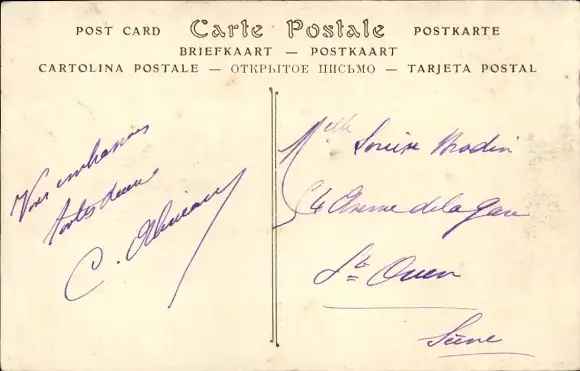 POST CARD Carte Postale POSTKARTE
BRIEFKAART — POSTKAART
CARTOLINA POSTALE — ОТКРЫТОЕ ПИСЬМО — TARJETA POSTAL
Vous embrassons
toutes deux
C.
Melle Louise Brodin
Avenue de la Gare
St Ouen
Seine